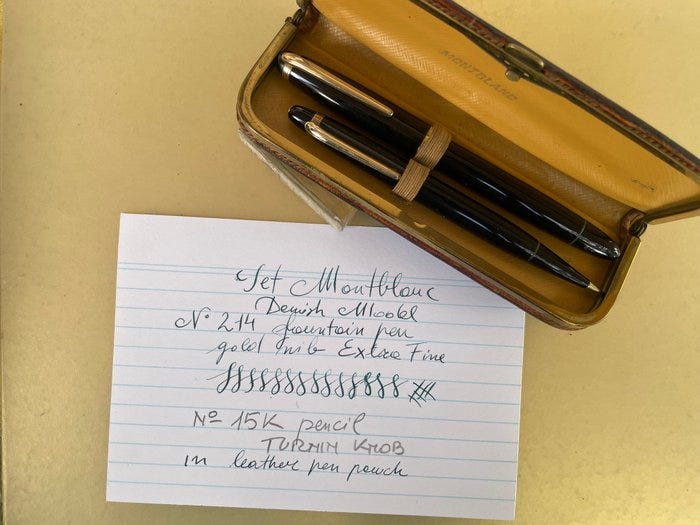 MONTBLANC
Set Montblanc
Danish Model
No 214 fountain pen
gold nib Extra Fine
No 15K pencil
TURNIN KNOB
in leather pen pouch